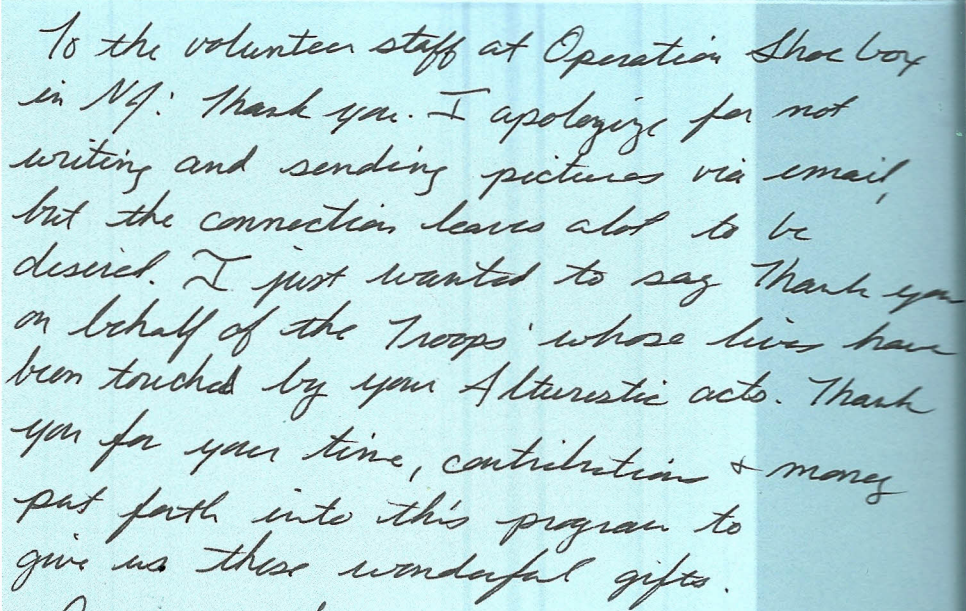 To the volunteer staff at Operation Shoe box
in NJ: Thank you. I apologize for not
writing and sending pictures via email,
but the connection leaves alot to be
desired. I just wanted to say Thank you
on behalf of the Troops' whose lives have
been touched by your Alturestic acts. Thank
you for your time, contributions & money
put forth into this program to
give us these wonderful gifts.